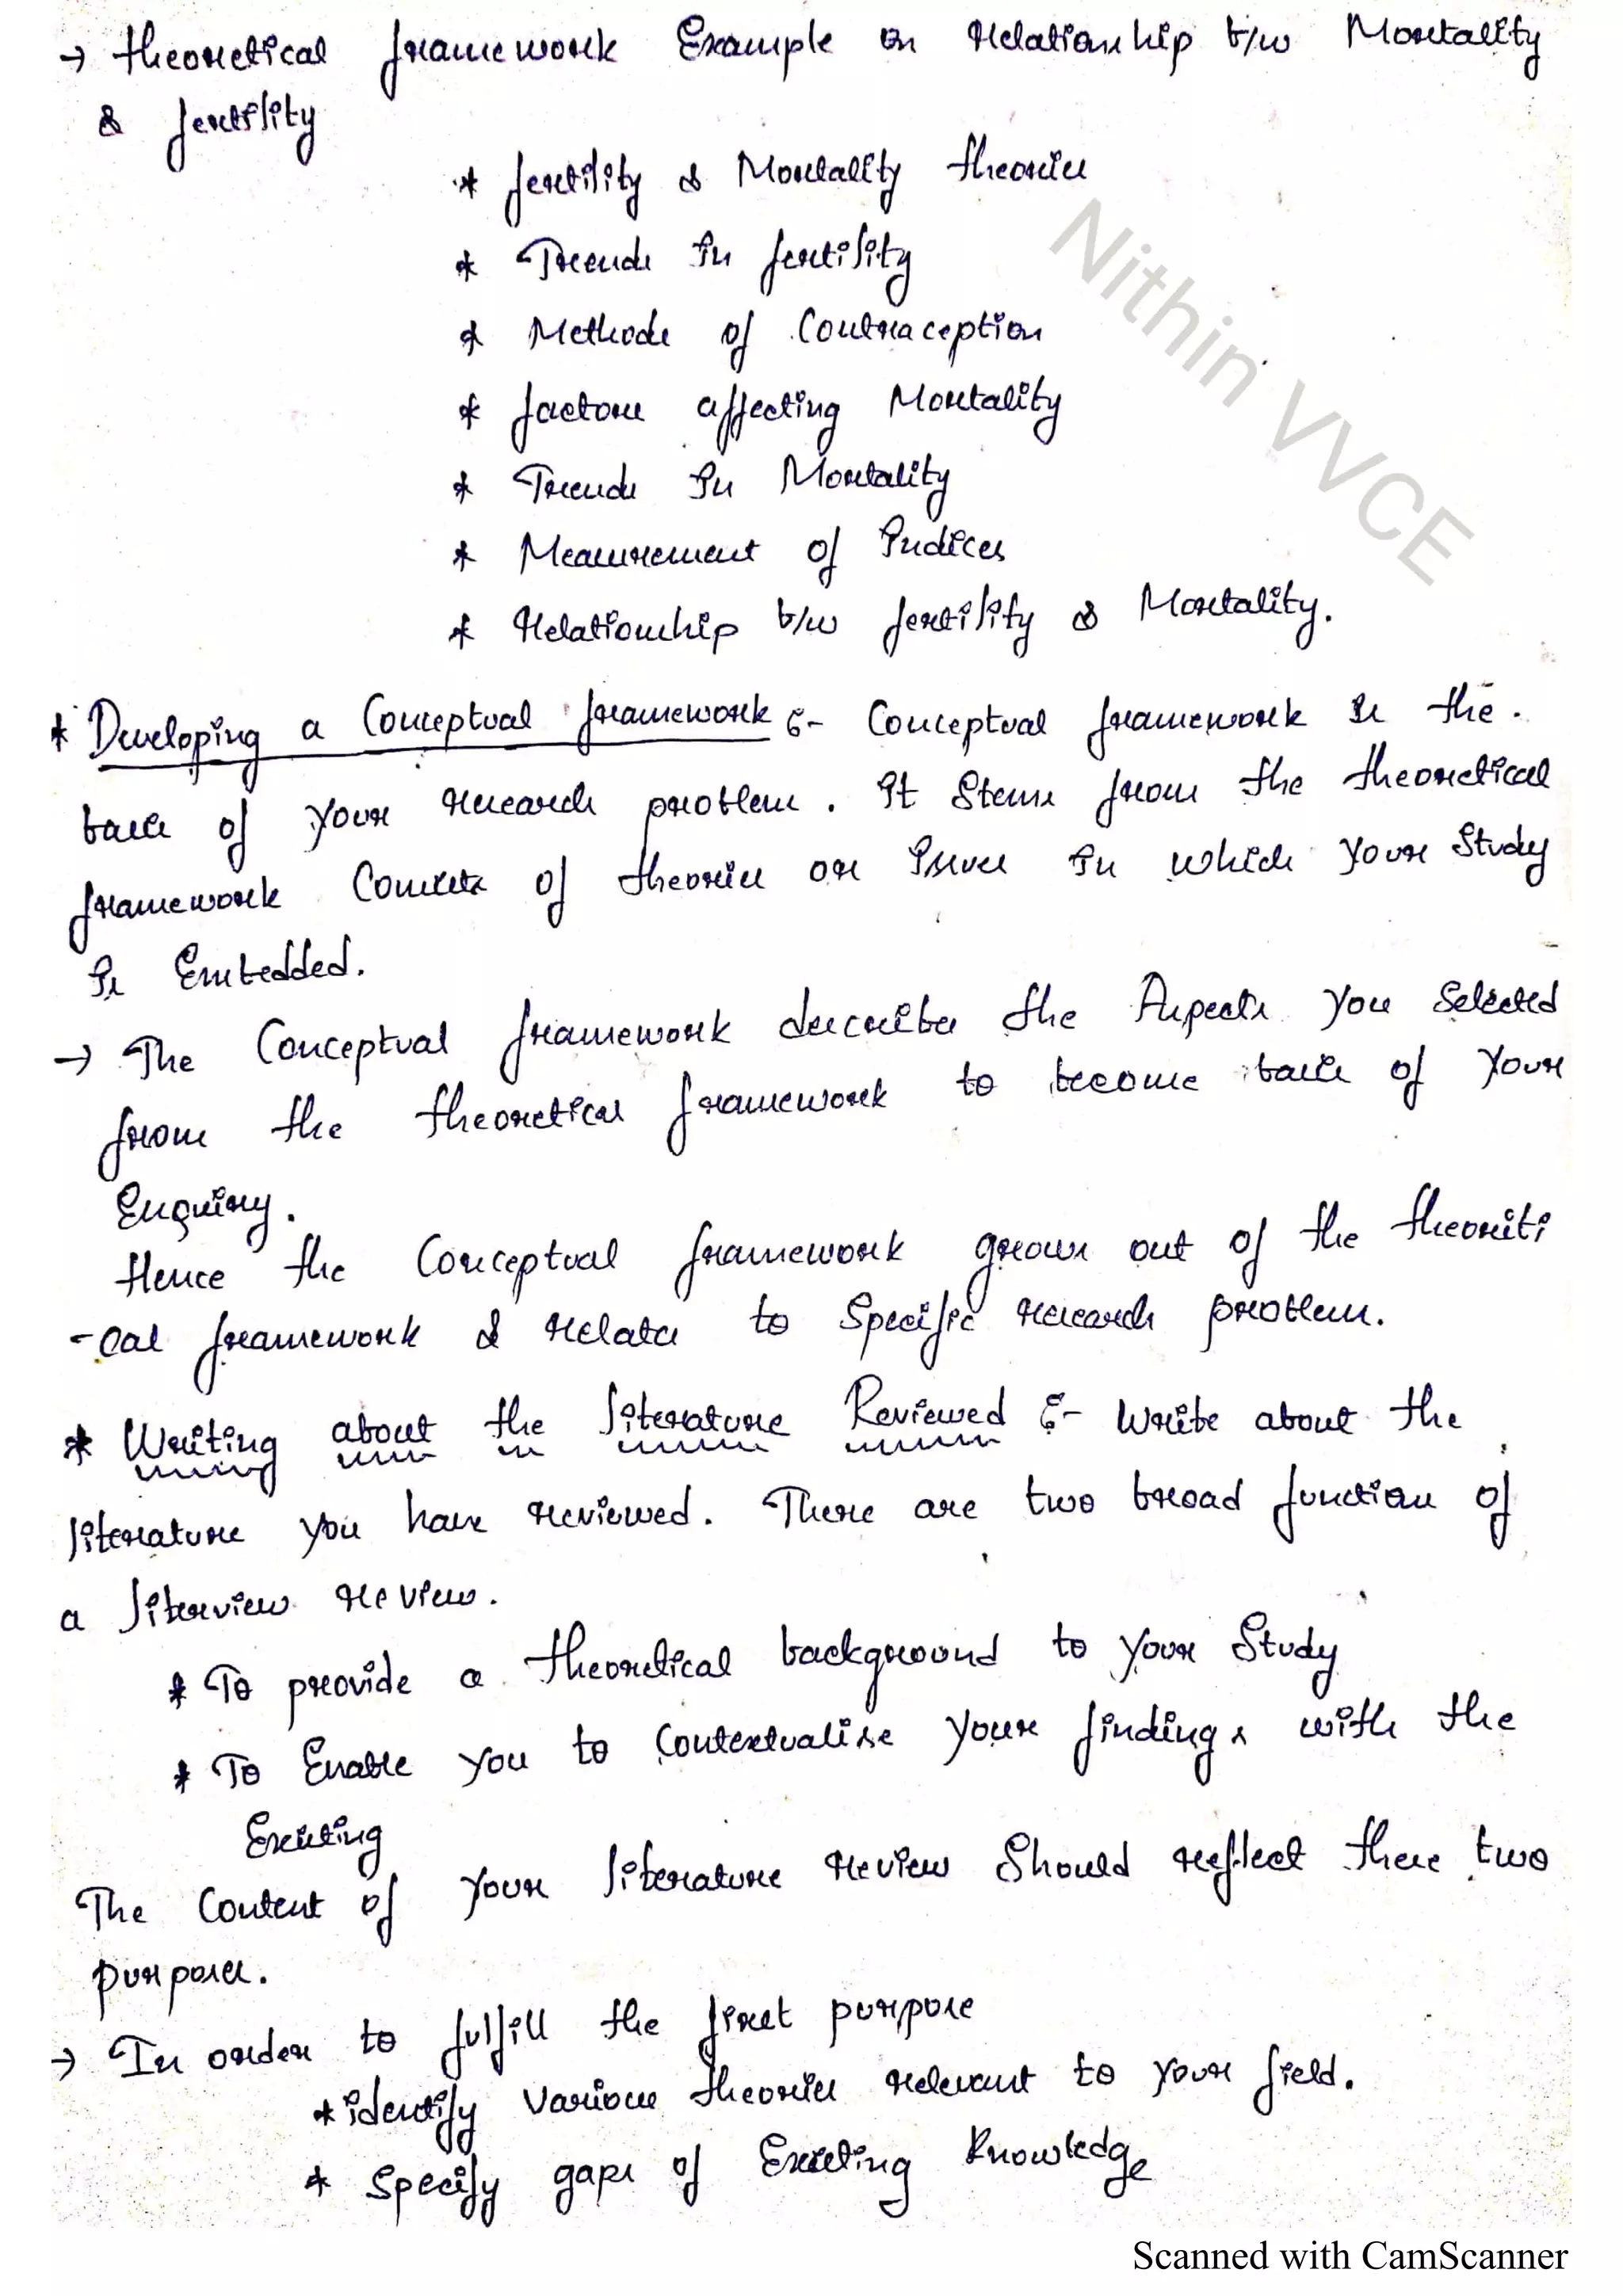 → theoretical framework Example on Relationship b/w Mortality
& fertility
* fertility & Mortality theories
* Trends in fertility
* Methods of Contraception
* factors affecting Mortality
* Trends in Mortality
* Measurement of Indices
* Relationship b/w fertility & Mortality.
* Developing a Conceptual framework :- Conceptual framework is the
basis of your research problem. It Stems from the theoretical
framework Consists of theories or issues in which your Study
is Embedded.
→ The Conceptual framework describes the Aspects you Selected
from the theoretical framework to become basis of your
Enquiry.
Hence the Conceptual framework grows out of the theoriti
-cal framework & relates to Specific research problem.
* Writing about the literature Reviewed :- Write about the
literature you have reviewed. There are two broad function of
a literview review.
* To provide a theoretical background to your Study
* To Enable you to Contextualise your findings with the
Existing
The Content of your literature review Should reflect these two
purposes.
→ In order to fulfill the first purpose
* identify various theories relevant to your field.
* Specify gaps of Existing knowledge
Nithin VVCE
Scanned with CamScanner